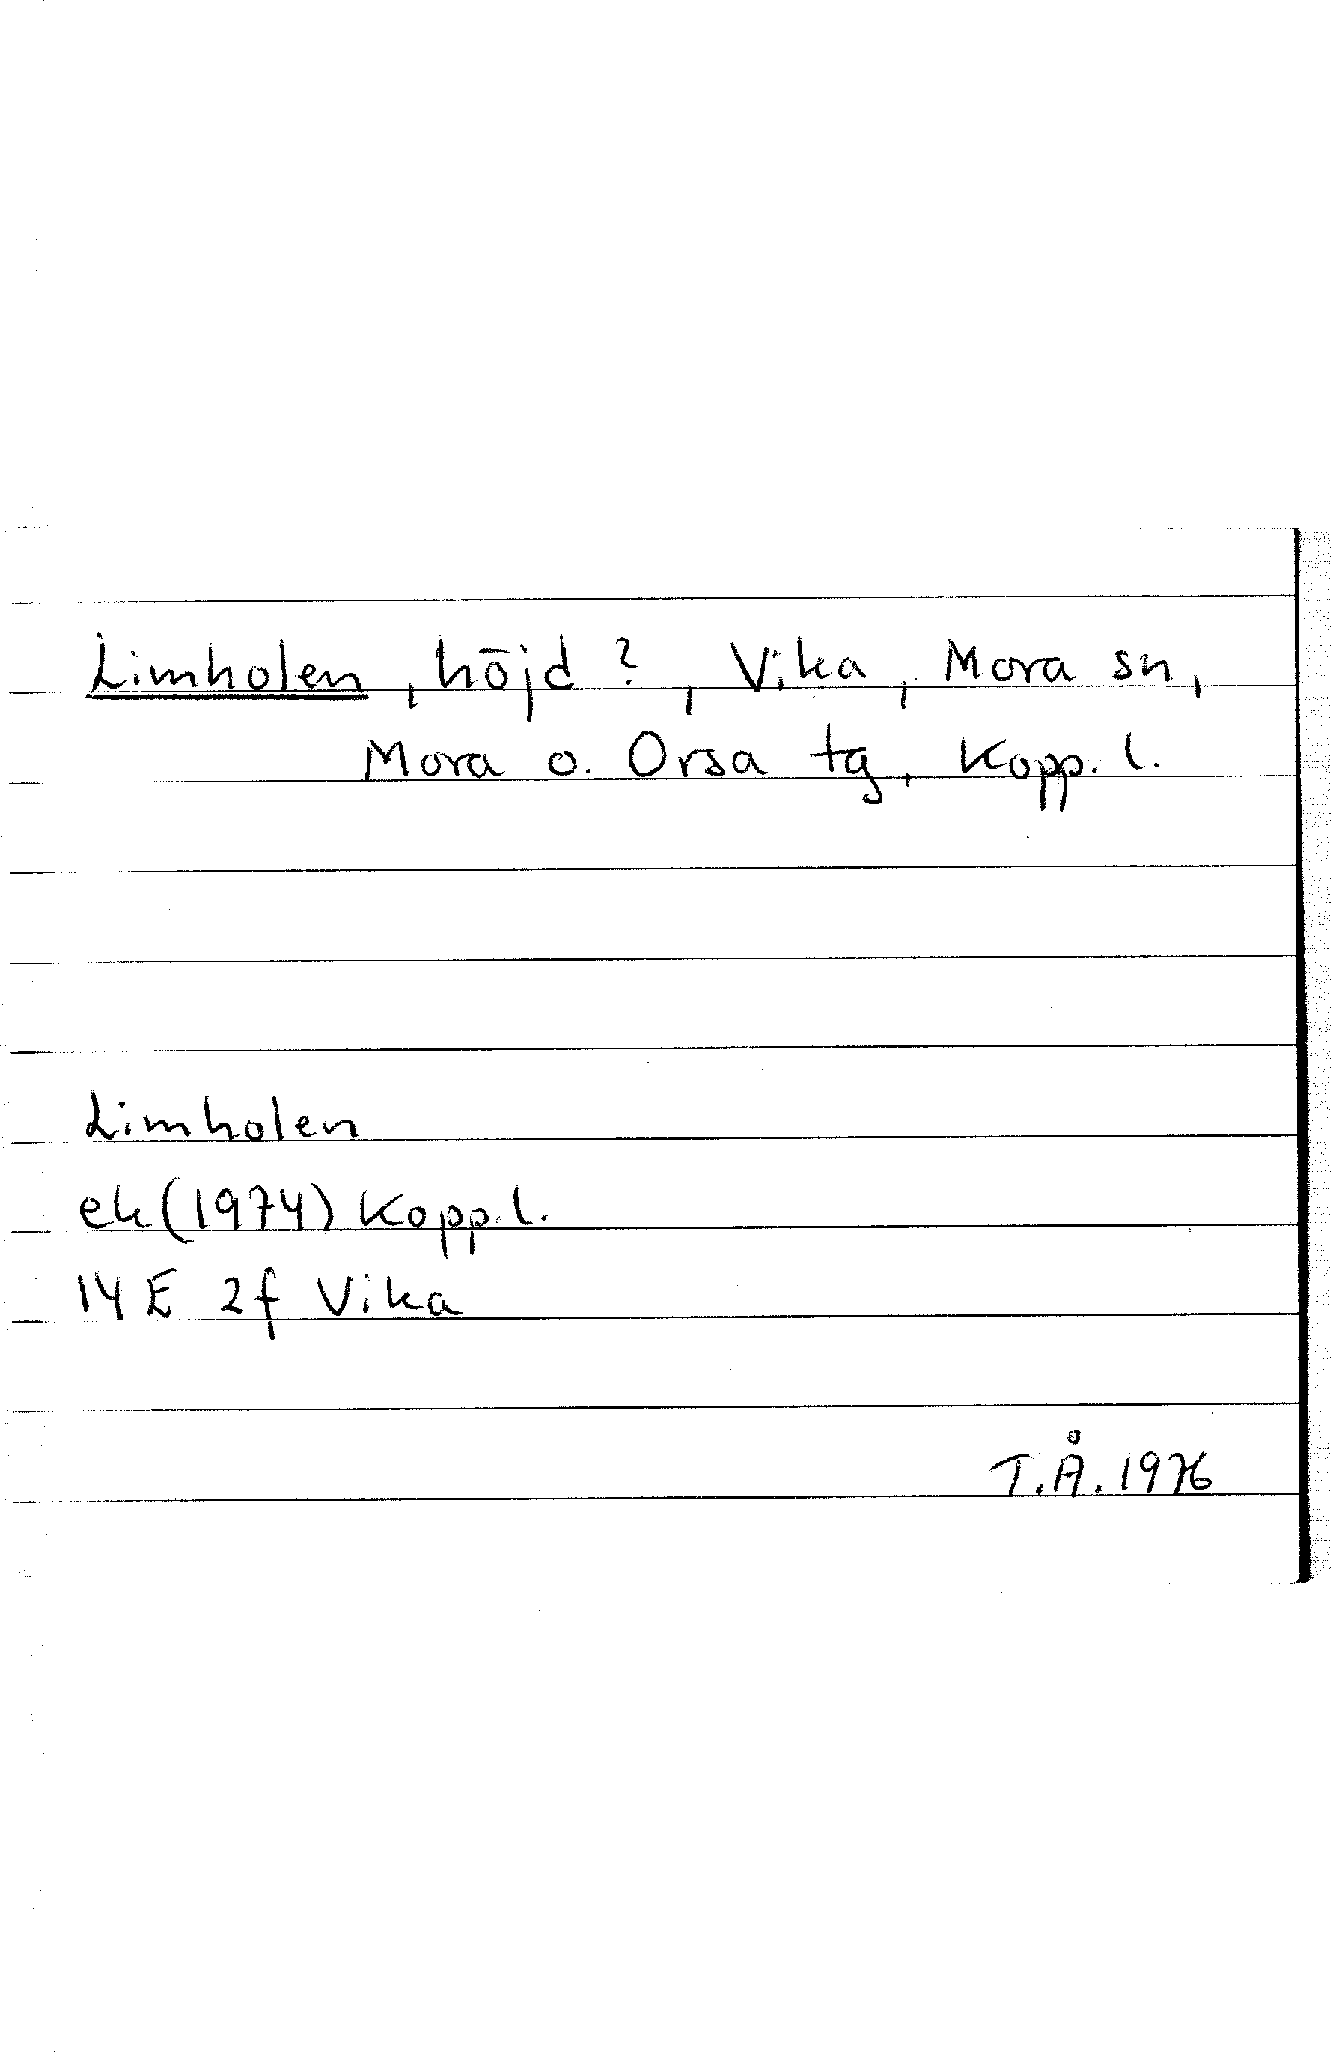 Limholen, höjd ?, Vika, Mora sn,
Mora o. Orsa tg, Kopp. l.
Limholen
ek (1974) Kopp. l.
14 E 2f Vika
T.Å. 1976